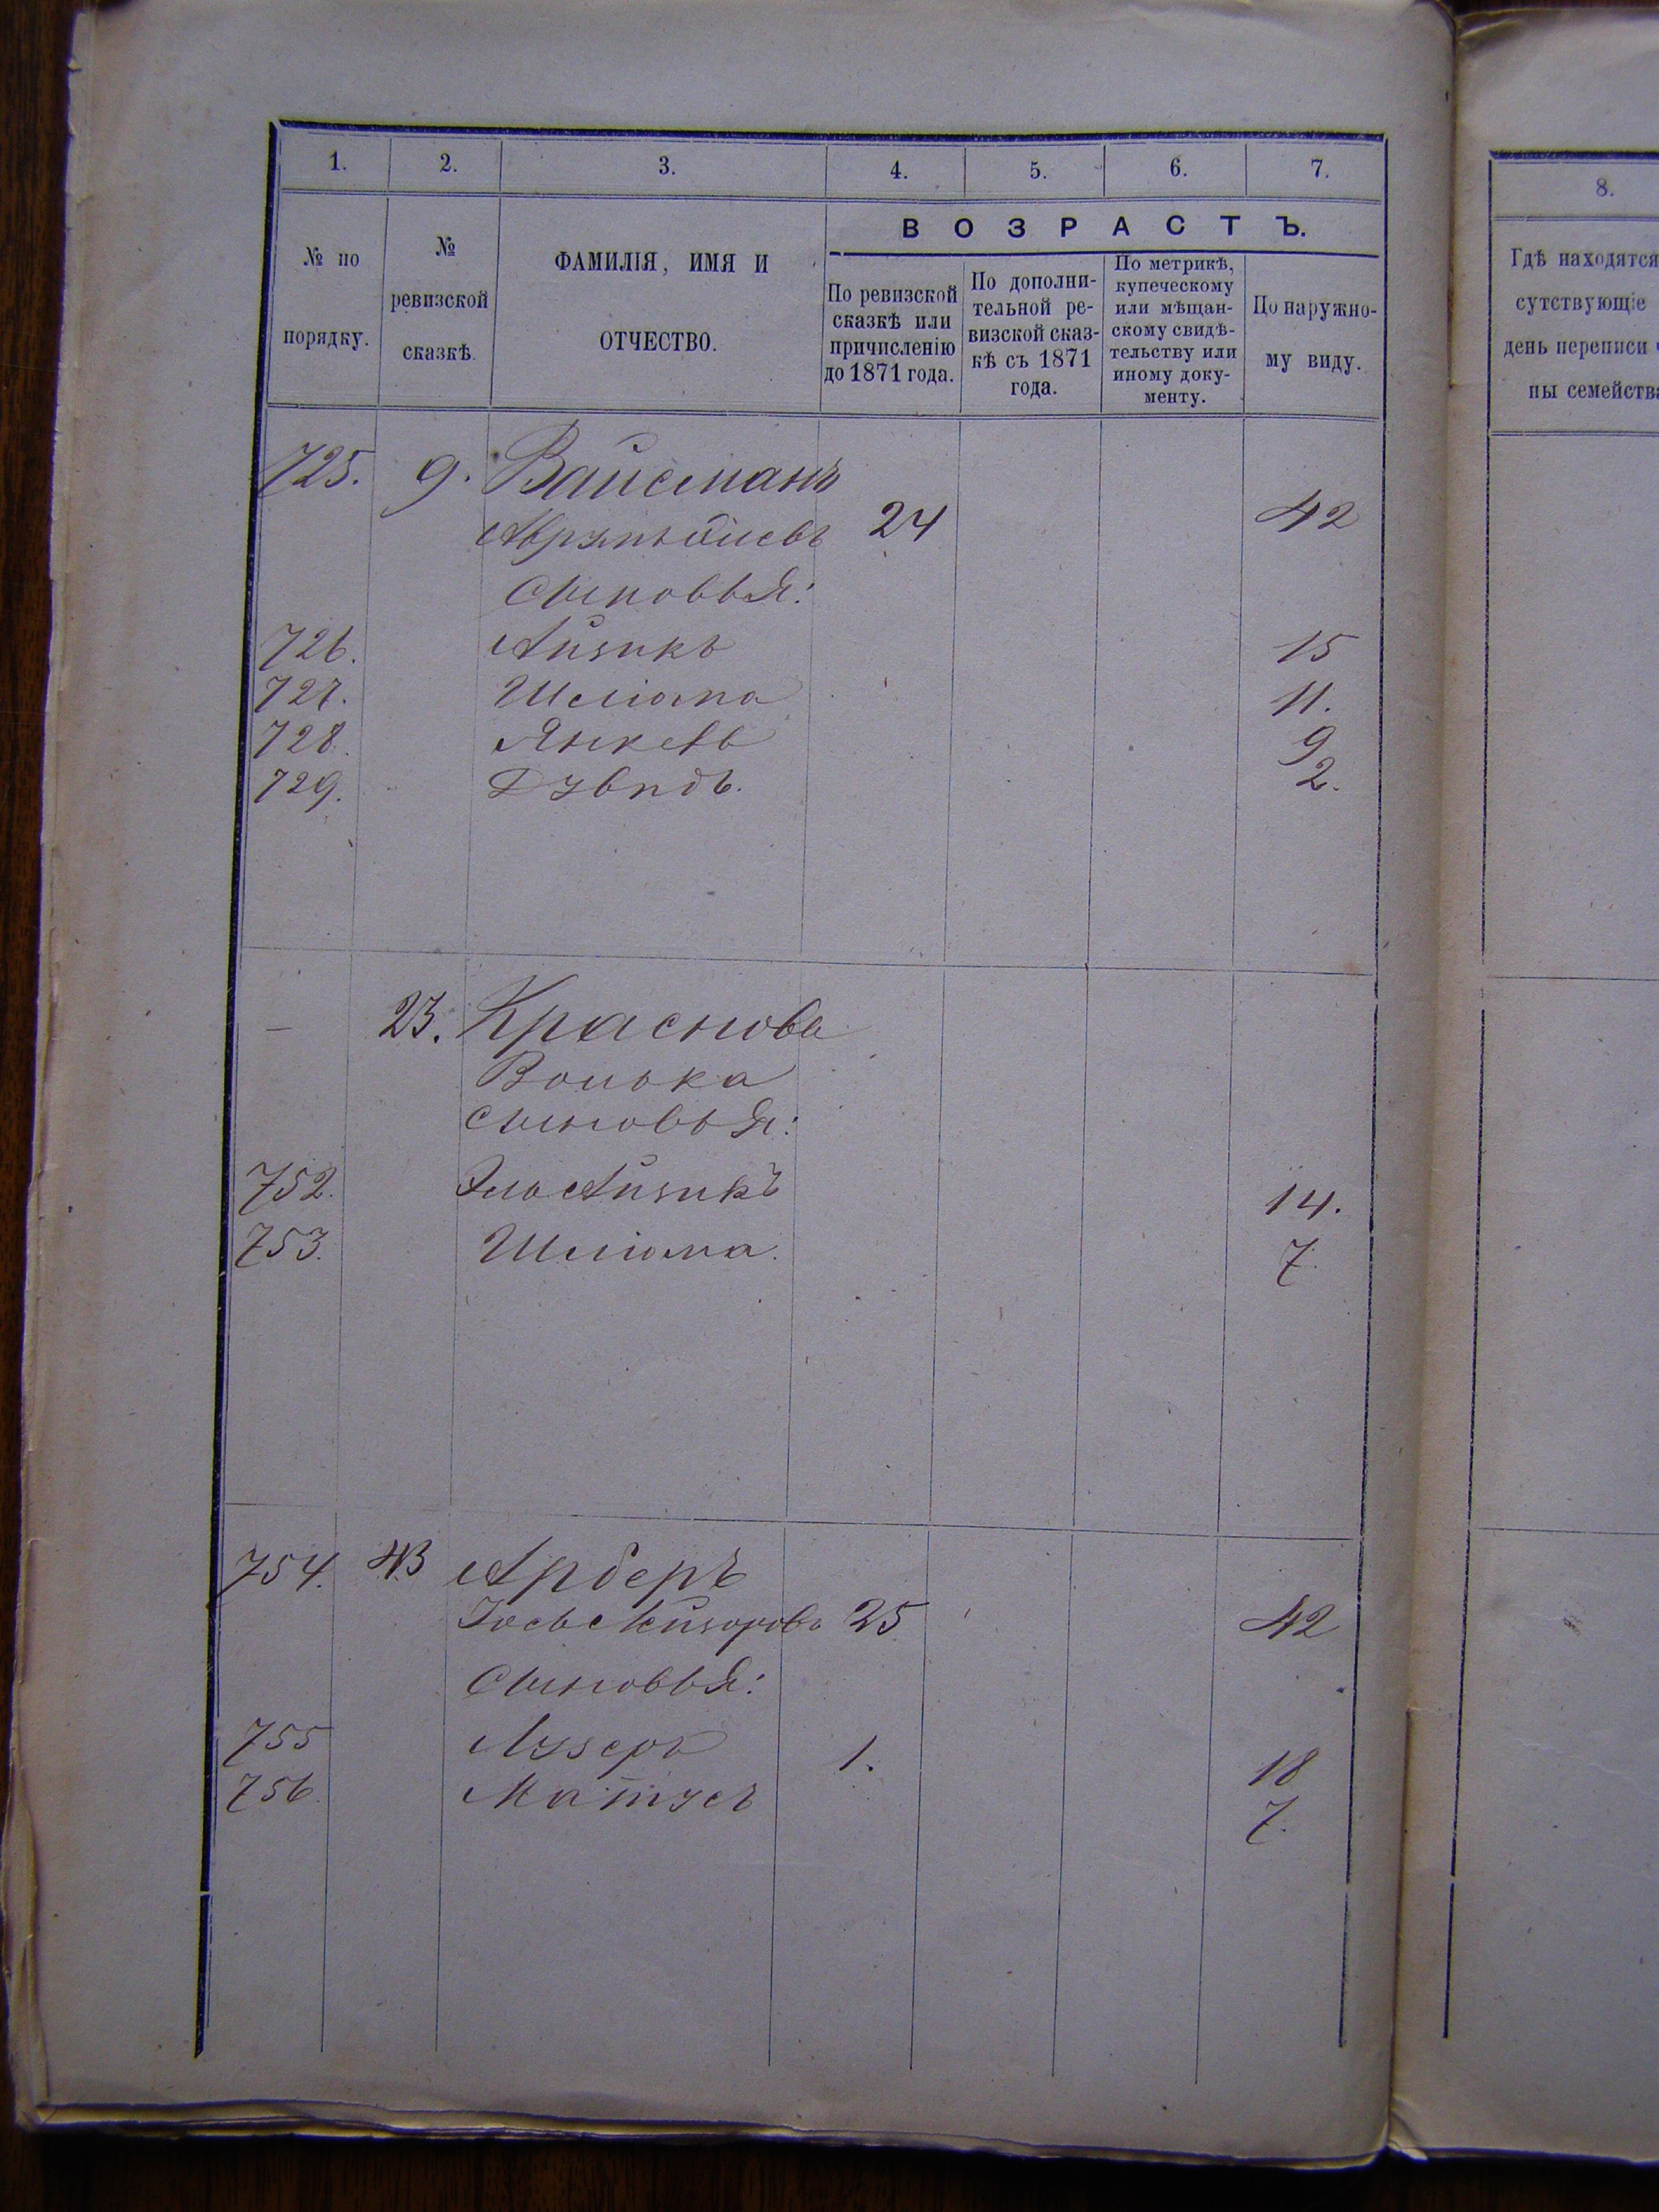 1. 2. 3. 4. 5. 6. 7.
№ по порядку.
№ ревизской сказкѣ.
ФАМИЛІЯ, ИМЯ И ОТЧЕСТВО.
ВОЗРАСТЪ.
По ревизской сказкѣ или причисленію до 1871 года.
По дополни-
тельной ре-
визской сказ-
кѣ съ 1871
года.
По метрикѣ,
купеческому
или мѣщан-
скому свидѣ-
тельству или
иному доку-
менту.
По наружно-
му виду.
725. 9. Вайсманъ
24 42
Сыновья:
726. Айзикъ 15
727. Шліома 11.
728. Янкель 9
729. Дувидъ. 2.
— 23. Краснова
Волька
Сыновья:
752. Эль Айзикъ 14.
753. Шліома. 7.
754. 43 Арберъ
Іось 25 42
Сыновья:
755 Лузеръ 1. 18
756. Матусъ 7.
8.
Гдѣ находятся
сутствующіе
день переписи
ны семейства